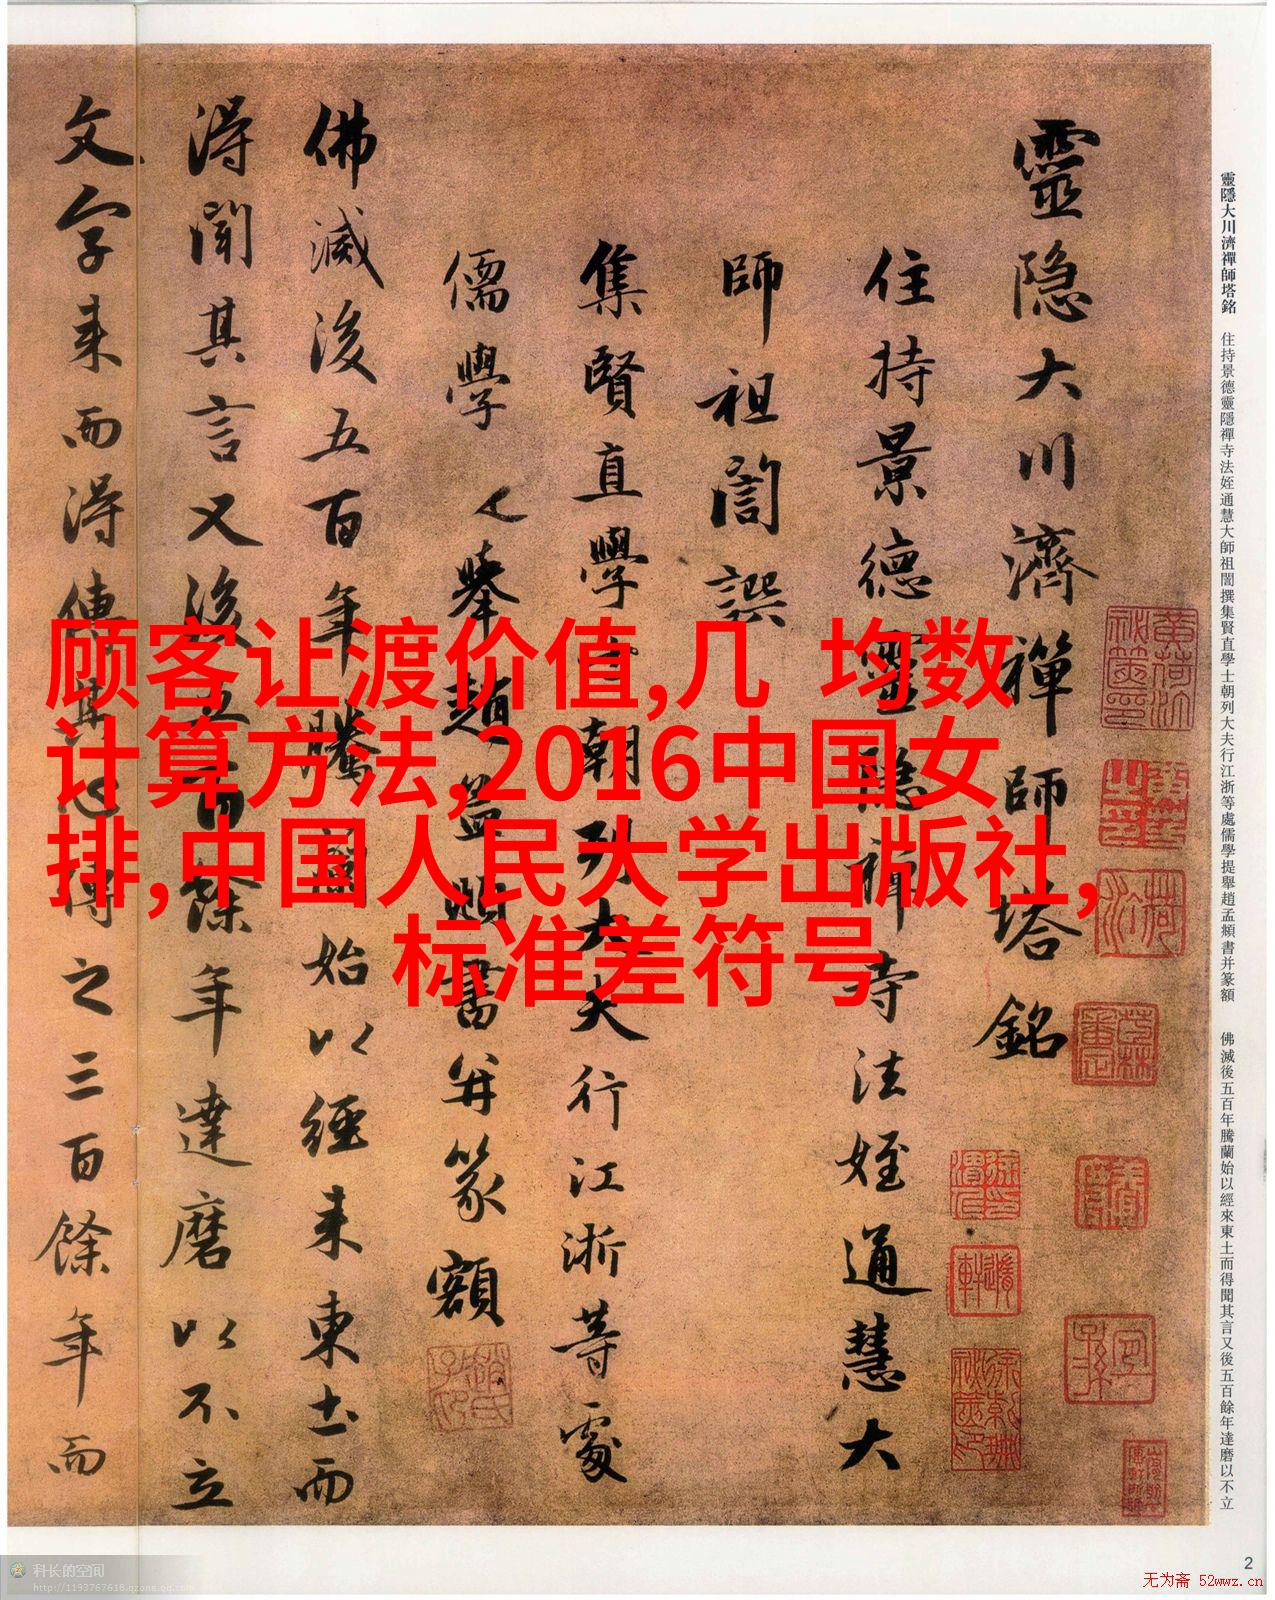 靈隱大川濟禪師塔銘
住持景德靈隱禪寺法姪通慧大
師祖誾譔
集賢直學士朝列大夫行江浙等處
儒學提舉趙孟頫書并篆額
佛滅後五百年騰蘭始以經来東土而
得聞其言又後五百餘年達磨以不立
文字来而得傳其心傳之三百餘年而
靈隱大川濟禪師塔銘 住持景德靈隱禪寺法姪通慧大師祖誾撰集賢直學士朝列大夫行江浙等處儒學提舉趙孟頫書并篆額 佛滅後五百年騰蘭始以經來東土而得聞其言又後五百餘年達磨以不立
顾客让渡价值,几 均数
计算方法,2016中国女
排,中国人民大学出版社,
标准差符号
2
科长的空间
http://1193767618.qzone.qq.com
无为斋 52wwz.cn